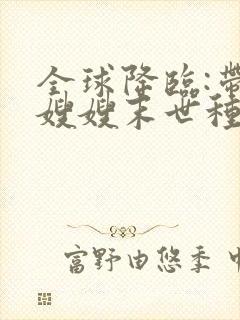 全球降臨:帶
嫂嫂末世種
富野由悠季